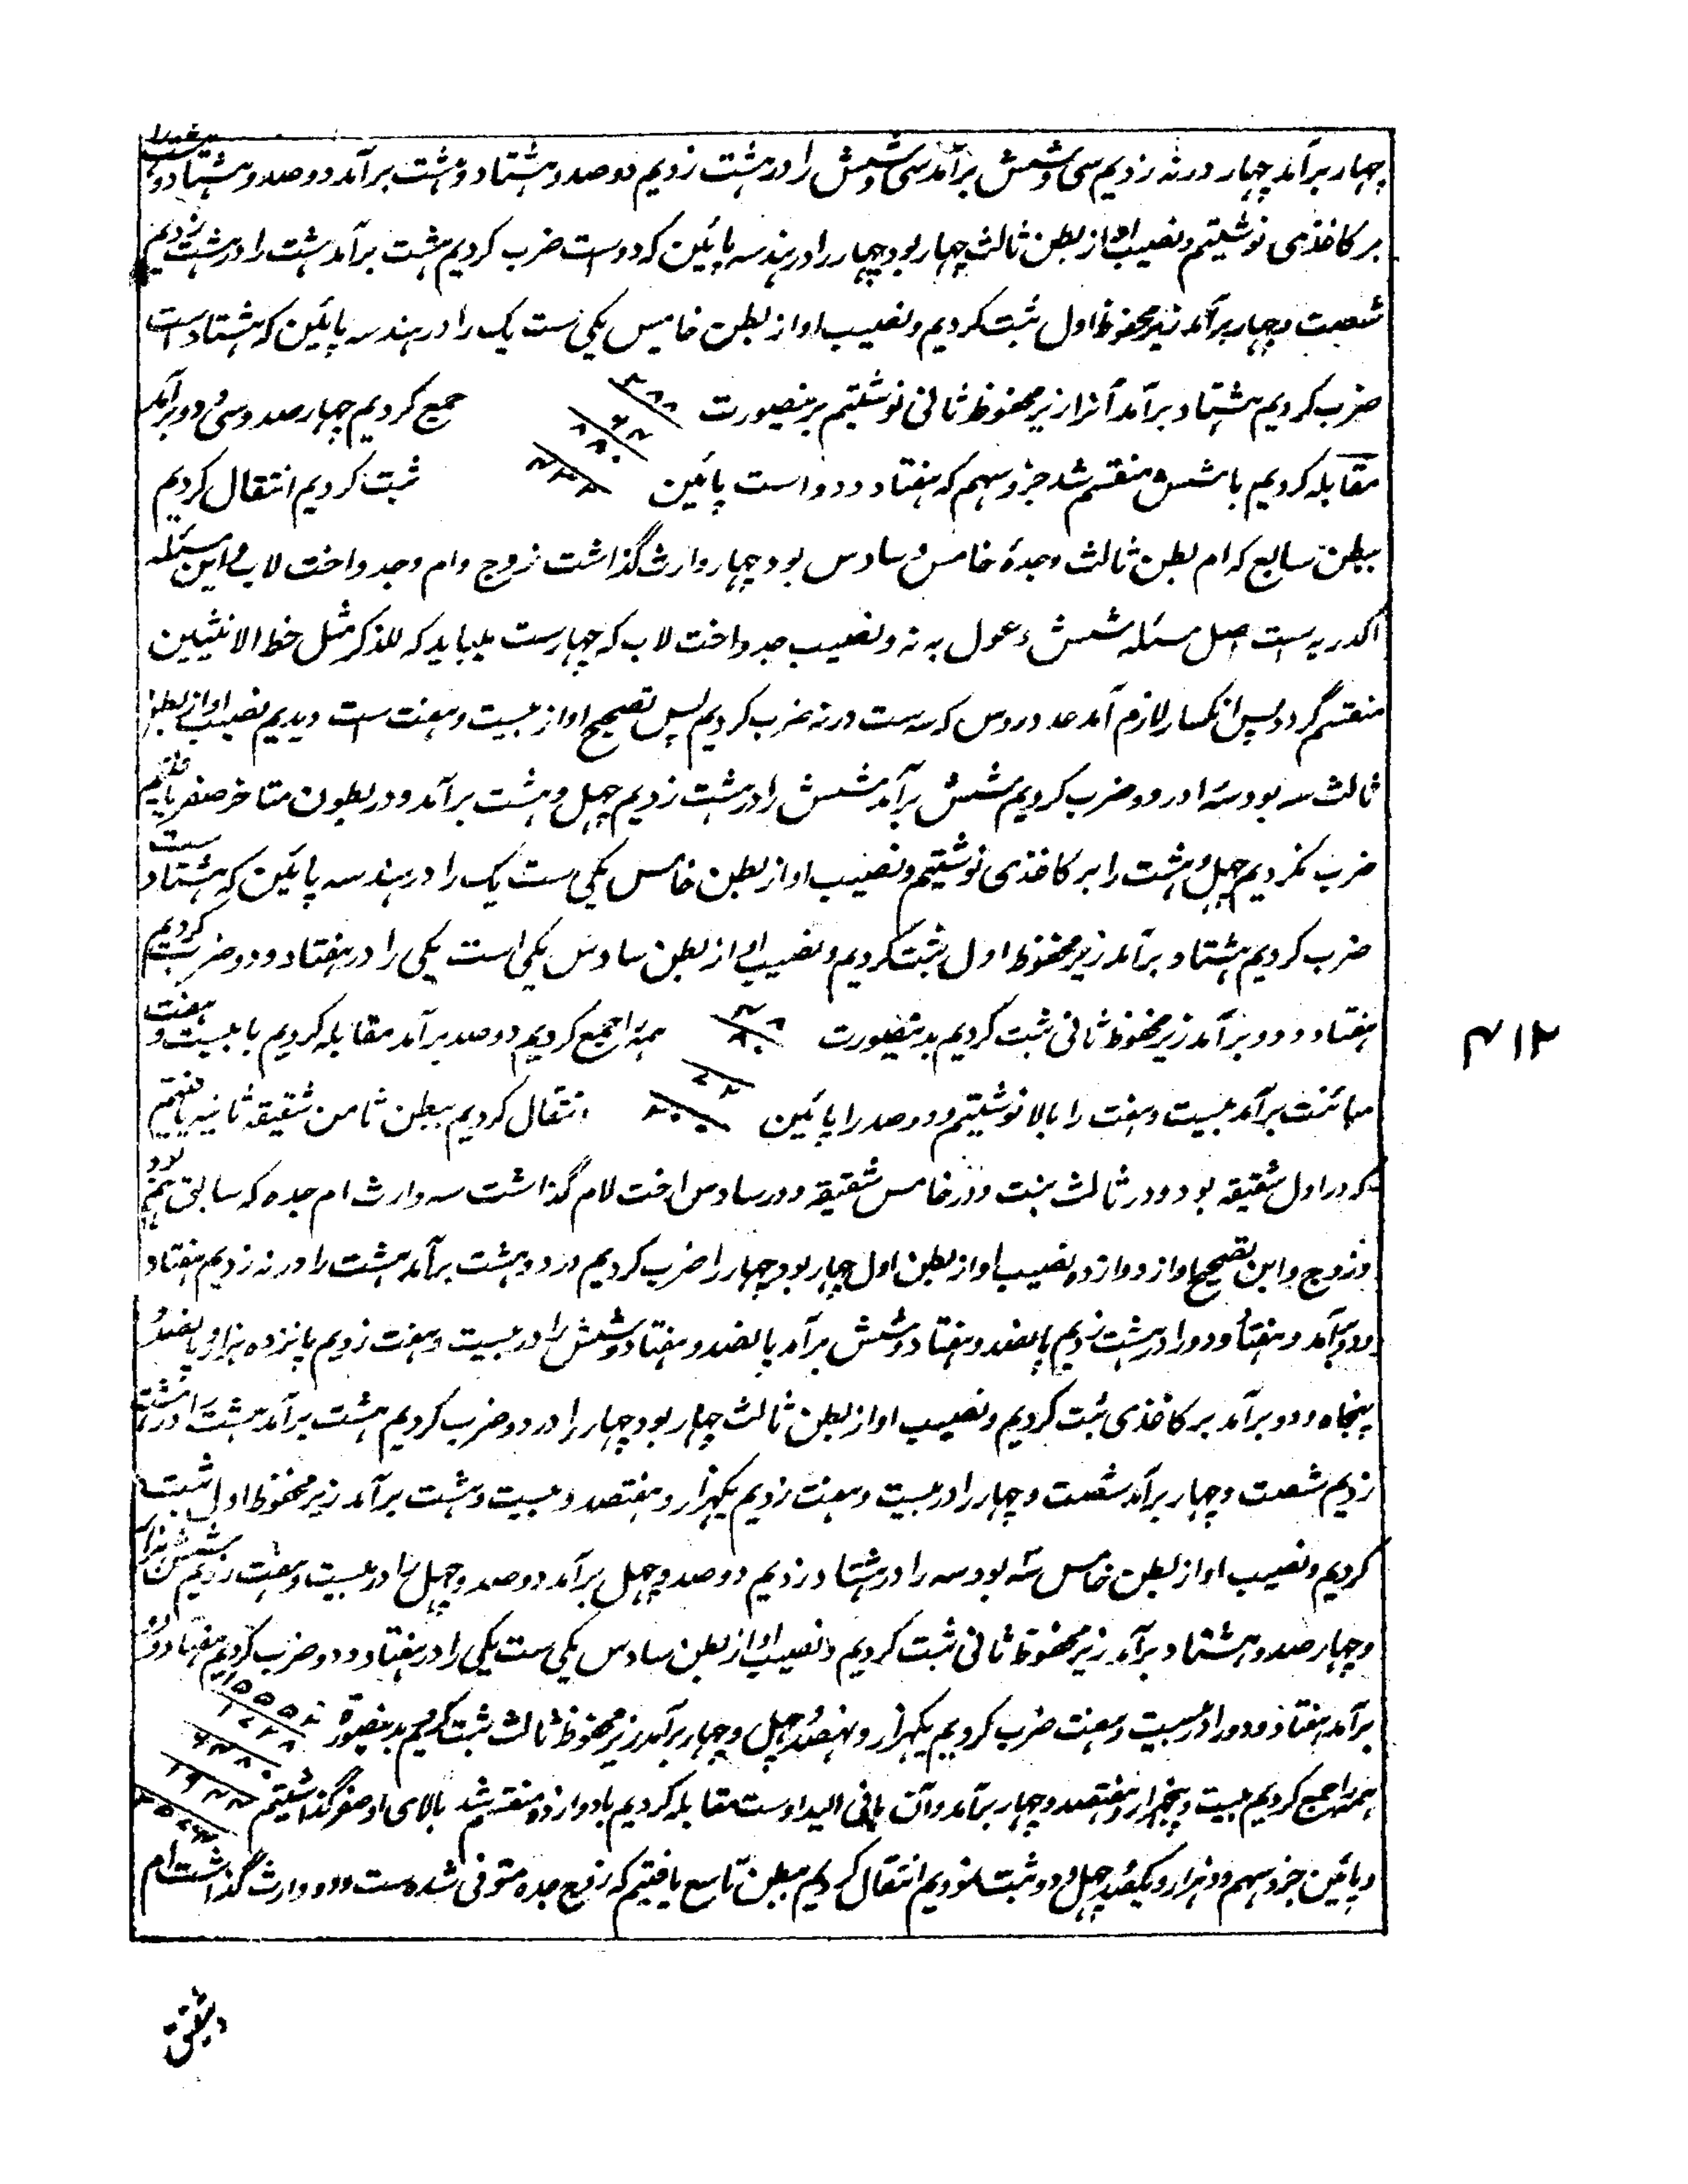 چهار برآمد چهار در نه زدیم سی و شش برآمد سی و شش را در هشت زدیم دو صد و هشتاد و هشت برآمد دو صد و هشتاد و هشت را
بر کاغذی نوشتیم و نصیب او از بطن ثالث چهار بود چهار را در هندسه پائین که دو است ضرب کردیم هشت برآمد هشت را در هشت زدیم
شصت و چهار برآمد زیر محفوظ اول ثبت کردیم و نصیب او از بطن خامس یکی ست یک را در هندسه پائین که هشتاد است
ضرب کردیم هشتاد برآمد آنرا زیر محفوظ ثانی نوشتیم برینصورت ۲۸۸ ۶۴ ۸۰ جمع کردیم چهار صد و سی و دو برآمد
مقابله کردیم با شش منقسم شد جزو سهم که هفتاد و دو است پائین ۴۳۲ ثبت کردیم انتقال کردیم
ببطن سابع که ام بطن ثالث و جدهٔ خامس و سادس بود چهار وارث گذاشت زوج و ام و جد و اخت لاب و این مسئله
اکدریه ست اصل مسئله شش و عول به نه و نصیب جد و اخت لاب که چهارست بباید که للذکر مثل حظ الانثیین
منقسم گردد پس انکسار لازم آمد عدد روس که سه ست در نه ضرب کردیم پس تصحیح او از بیست و هفت ست دیدیم نصیب او از بطن
ثالث سه بود سه را در دو ضرب کردیم شش برآمد شش را در هشت زدیم چهل و هشت برآمد و در بطون متاخر صفر یافتیم
ضرب نکردیم چهل و هشت را بر کاغذی نوشتیم و نصیب او از بطن خامس یکی ست یک را در هندسه پائین که هشتاد ست
ضرب کردیم هشتاد برآمد زیر محفوظ اول ثبت کردیم و نصیب او از بطن سادس یکی است یکی را در هفتاد و دو ضرب کردیم
هفتاد و دو برآمد زیر محفوظ ثانی ثبت کردیم بدینصورت ۴۸ ۸۰ ۷۲ همه را جمع کردیم دو صد برآمد مقابله کردیم با بیست و هفت
مبائنت برآمد بیست و هفت را بالا نوشتیم و دو صد را پائین ۲۰۰ انتقال کردیم ببطن ثامن شقیقه ثانیه یافتیم
که در اول شقیقه بود و در ثالث بنت و در خامس شقیقه و در سادس اخت لام گذاشت سه وارث ام جده که سابق بود
و زوج و ابن تصحیح او از دوازده و نصیب او از بطن اول چهار بود چهار را ضرب کردیم در دو هشت برآمد هشت را در نه زدیم هفتاد
و دو برآمد و هفتاد و دو را در هشت زدیم پانصد و هفتاد و شش برآمد پانصد و هفتاد و شش را در بیست و هفت زدیم پانزده هزار و پانصد و
پنجاه و دو برآمد بر کاغذی ثبت کردیم و نصیب او از بطن ثالث چهار بود چهار را در دو ضرب کردیم هشت برآمد هشت را در هشت
زدیم شصت و چهار برآمد شصت و چهار را در بیست و هفت زدیم یکهزار و هفتصد و بیست و هشت برآمد زیر محفوظ اول ثبت
کردیم و نصیب او از بطن خامس سه بود سه را در هشتاد زدیم دو صد و چهل برآمد دو صد و چهل را در بیست و هفت زدیم شش هزار
و چهار صد و هشتاد برآمد زیر محفوظ ثانی ثبت کردیم و نصیب او از بطن سادس یکی ست یکی را در هفتاد و دو ضرب کردیم هفتاد و دو
برآمد هفتاد و دو را در بیست و هفت ضرب کردیم یکهزار و نهصد و چهل و چهار برآمد زیر محفوظ ثالث ثبت کردیم بدینصورة ۱۵۵۵۲ ۱۷۲۸ ۶۴۸۰ ۱۹۴۴
همه را جمع کردیم بیست و پنجهزار و هفتصد و چهار برآمد و آن مافی الید اوست مقابله کردیم با دوازده منقسم شد بالای او صفر گذاشتیم ۲۵۷۰۴
و پائین جزو سهم دو هزار و یکصد و چهل و دو ثبت نمودیم انتقال کردیم ببطن تاسع یافتیم که زوج جده متوفی شده ست و دو وارث گذاشت ام
۴۱۲